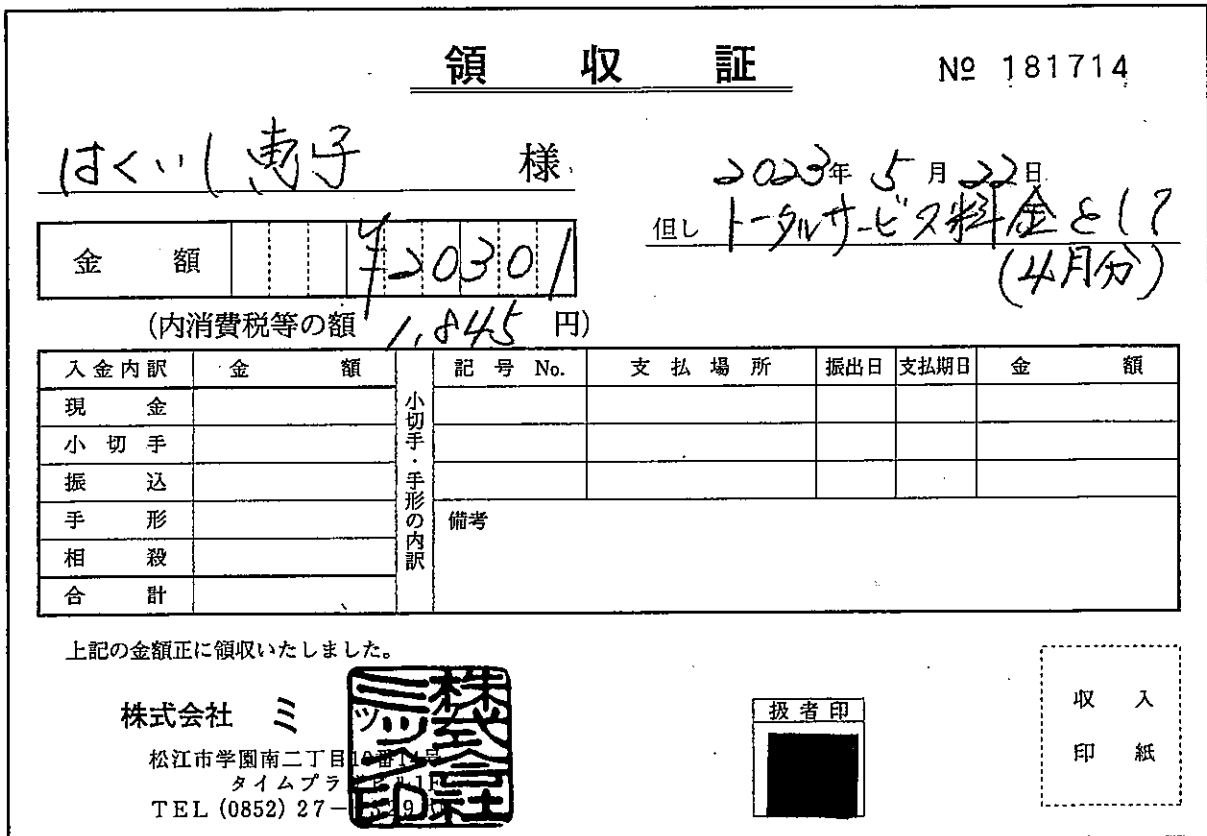 領収証
№ 181714
はくいし恵子 様
2023年 5月 22日
但し トータルサービス料金として
(4月分)
金額 ¥20301
(内消費税等の額 1,845 円)
入金内訳 金額 小切手・手形の内訳 記号 No. 支払場所 振出日 支払期日 金額
現金
小切手
振込
手形 備考
相殺
合計
上記の金額正に領収いたしました。
株式会社 ミ
松江市学園南二丁目
タイムプラ
TEL (0852) 27-
扱者印
収入
印紙